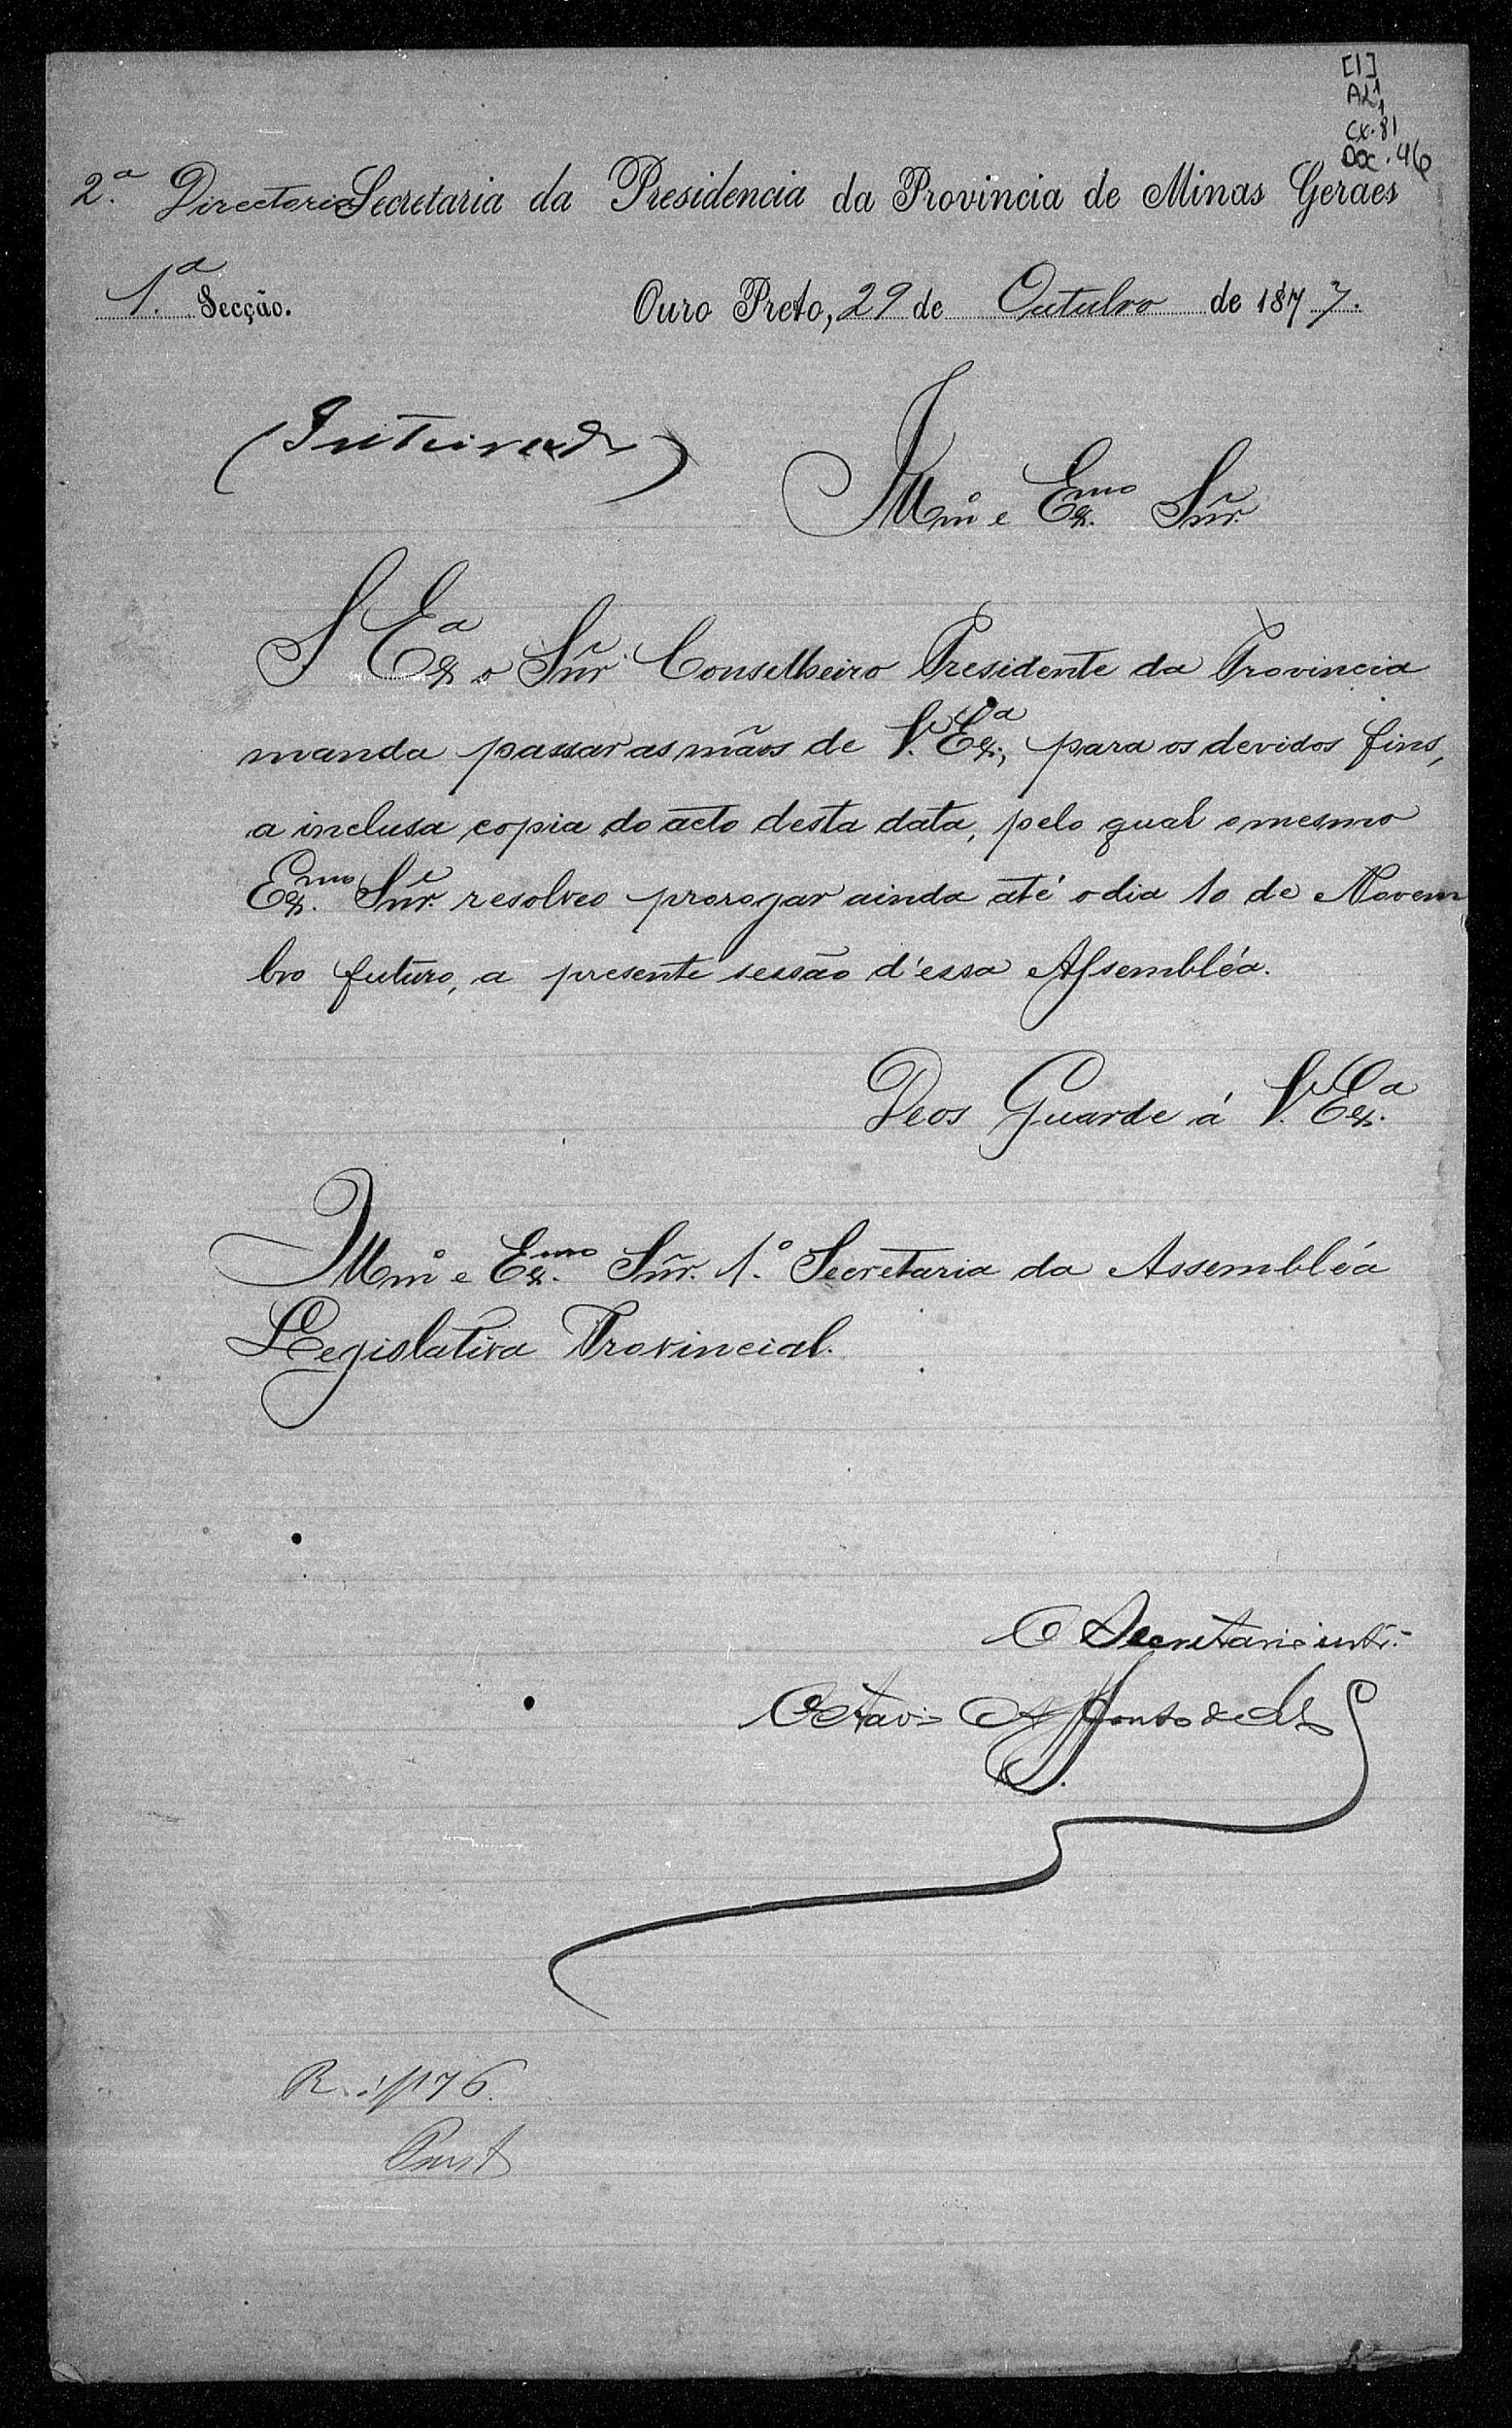 [1]
AL1
1
Cx. 81
Doc. 46
2.ª Directoria Secretaria da Presidencia da Provincia de Minas Geraes
1.ª Secção.
Ouro Preto, 29 de Outubro de 1877.
(Inteirada)
Illmº e Exmo Sñr.
S Exª o Sñr Conselheiro Presidente da Provincia
manda passar as mãos de V. Exª, para os devidos fins,
a inclusa copia do acto desta data, pelo qual o mesmo
Exmo Sñr. resolveo prorogar ainda até o dia 10 de Novem
bro futuro, a presente sessão d'essa Assembléa.
Deos Guarde á V. Exª
Illmº e Exmo Sñr. 1.º Secretario da Assembléa
Legislativa Provincial.
O Secretario intº.
Octavio Affonso de
R.